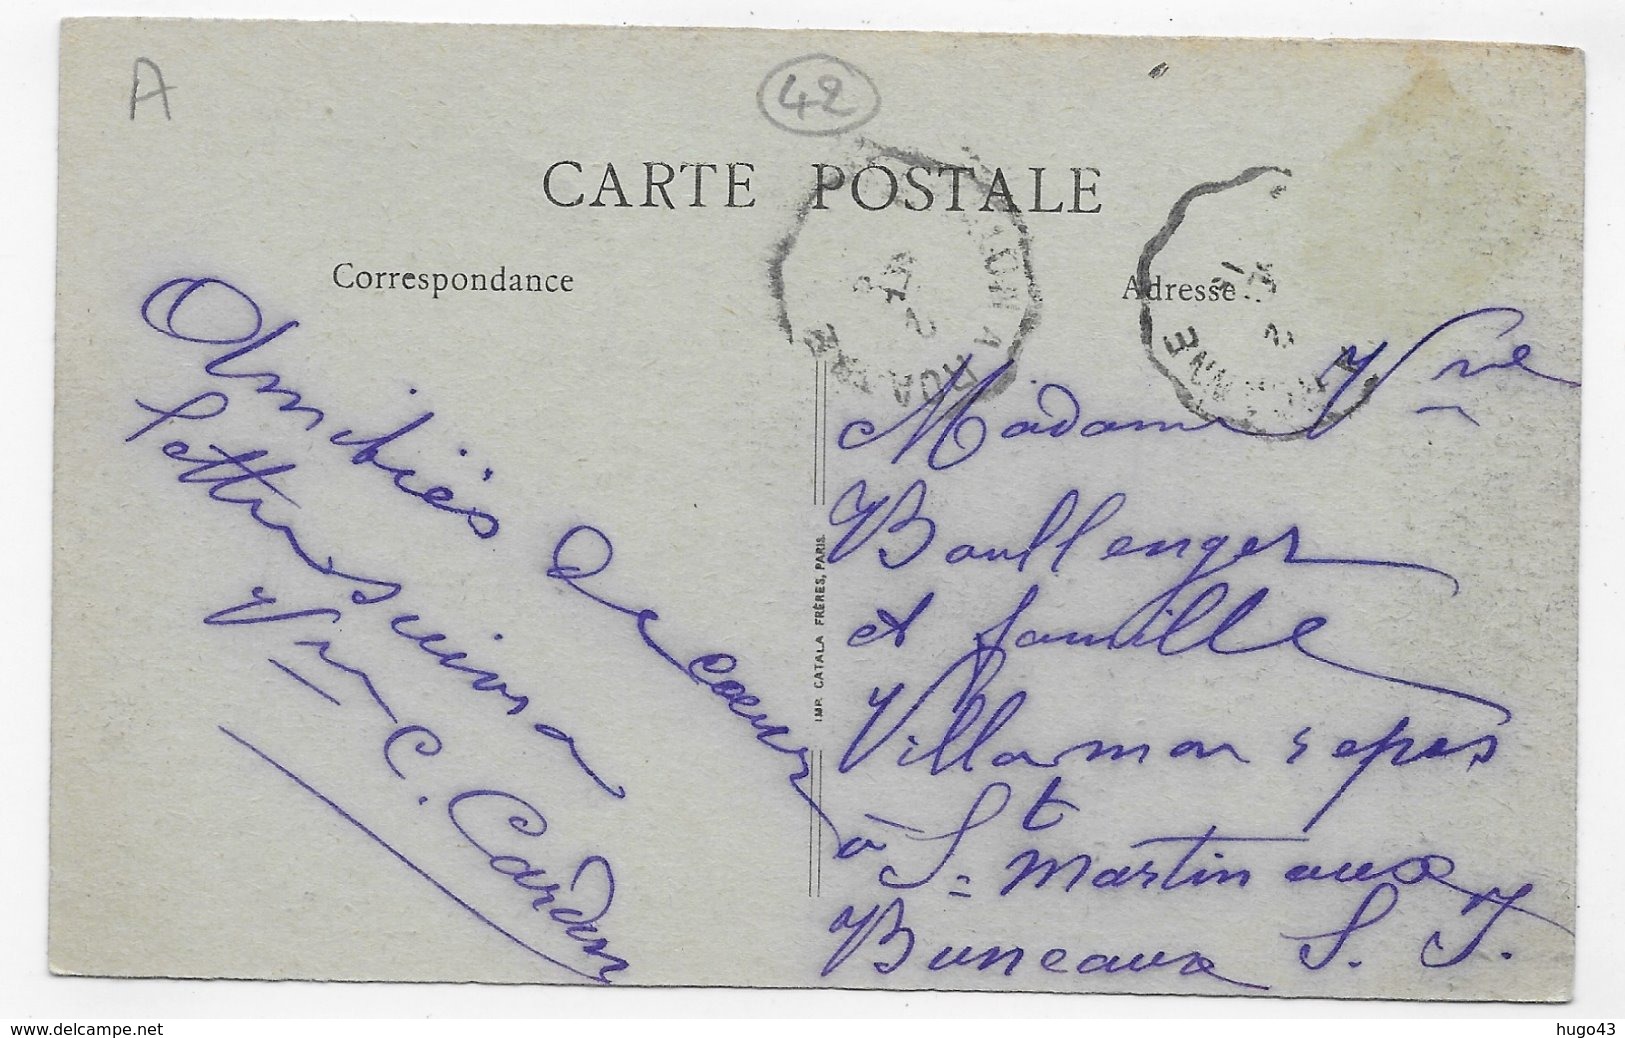 A
42
CARTE POSTALE
Correspondance
Adresse
Amitiés de cœur
lettre suivra
Vve C. Cardon
IMP. CATALA FRÈRES, PARIS
Madame Vve
Boullenger
et famille
Villa mon repos
à St Martin aux
Buneaux S. I.
www.delcampe.net
hugo43